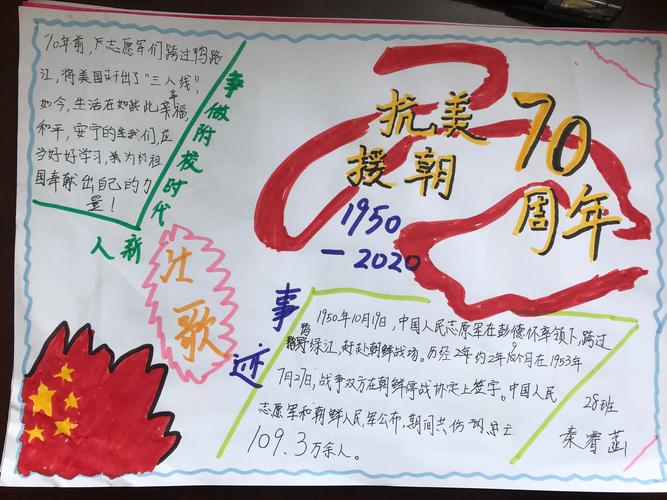 70年前,志愿军们跨过鸭路
江,将美国赶出了“三八线”,
如今,生活在如此幸福,
和平,安宁的我们,应
当好好学习,来为祖
国奉献出自己的力
量!
争做附校时代
新人
抗美
援朝
70
周年
1950
-2020
壮歌
事迹
1950年10月19日,中国人民志愿军在彭德怀率领下,跨过
绿江,赶赴朝鲜战场。历经2年约2年9个月在1953年
7月27日,战争双方在朝鲜停战协定上签字。中国人民
志愿军和朝鲜人民军公布,期间共伤
109.3万余人。
28班
秦